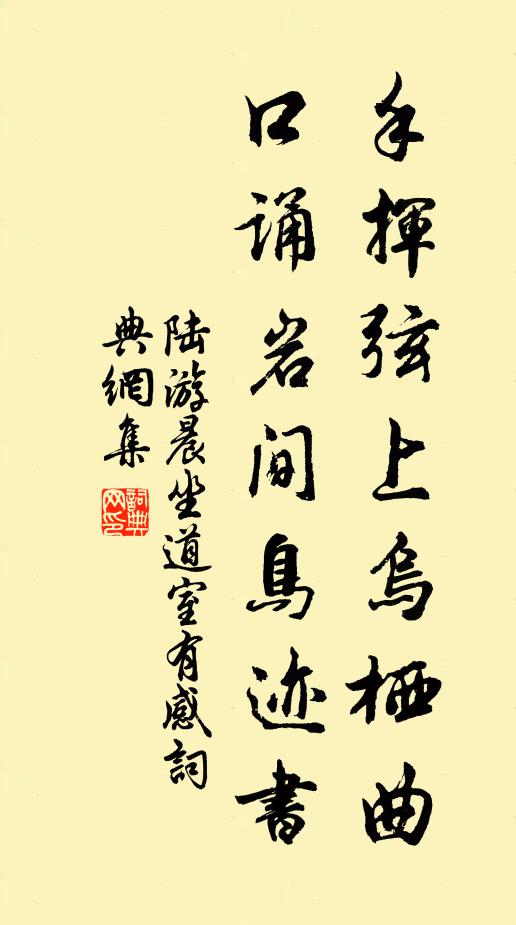 手揮弦上烏栖曲
口诵岩間鳥迹書
陆游晨坐道室有感詞
典網集
詞典
网印